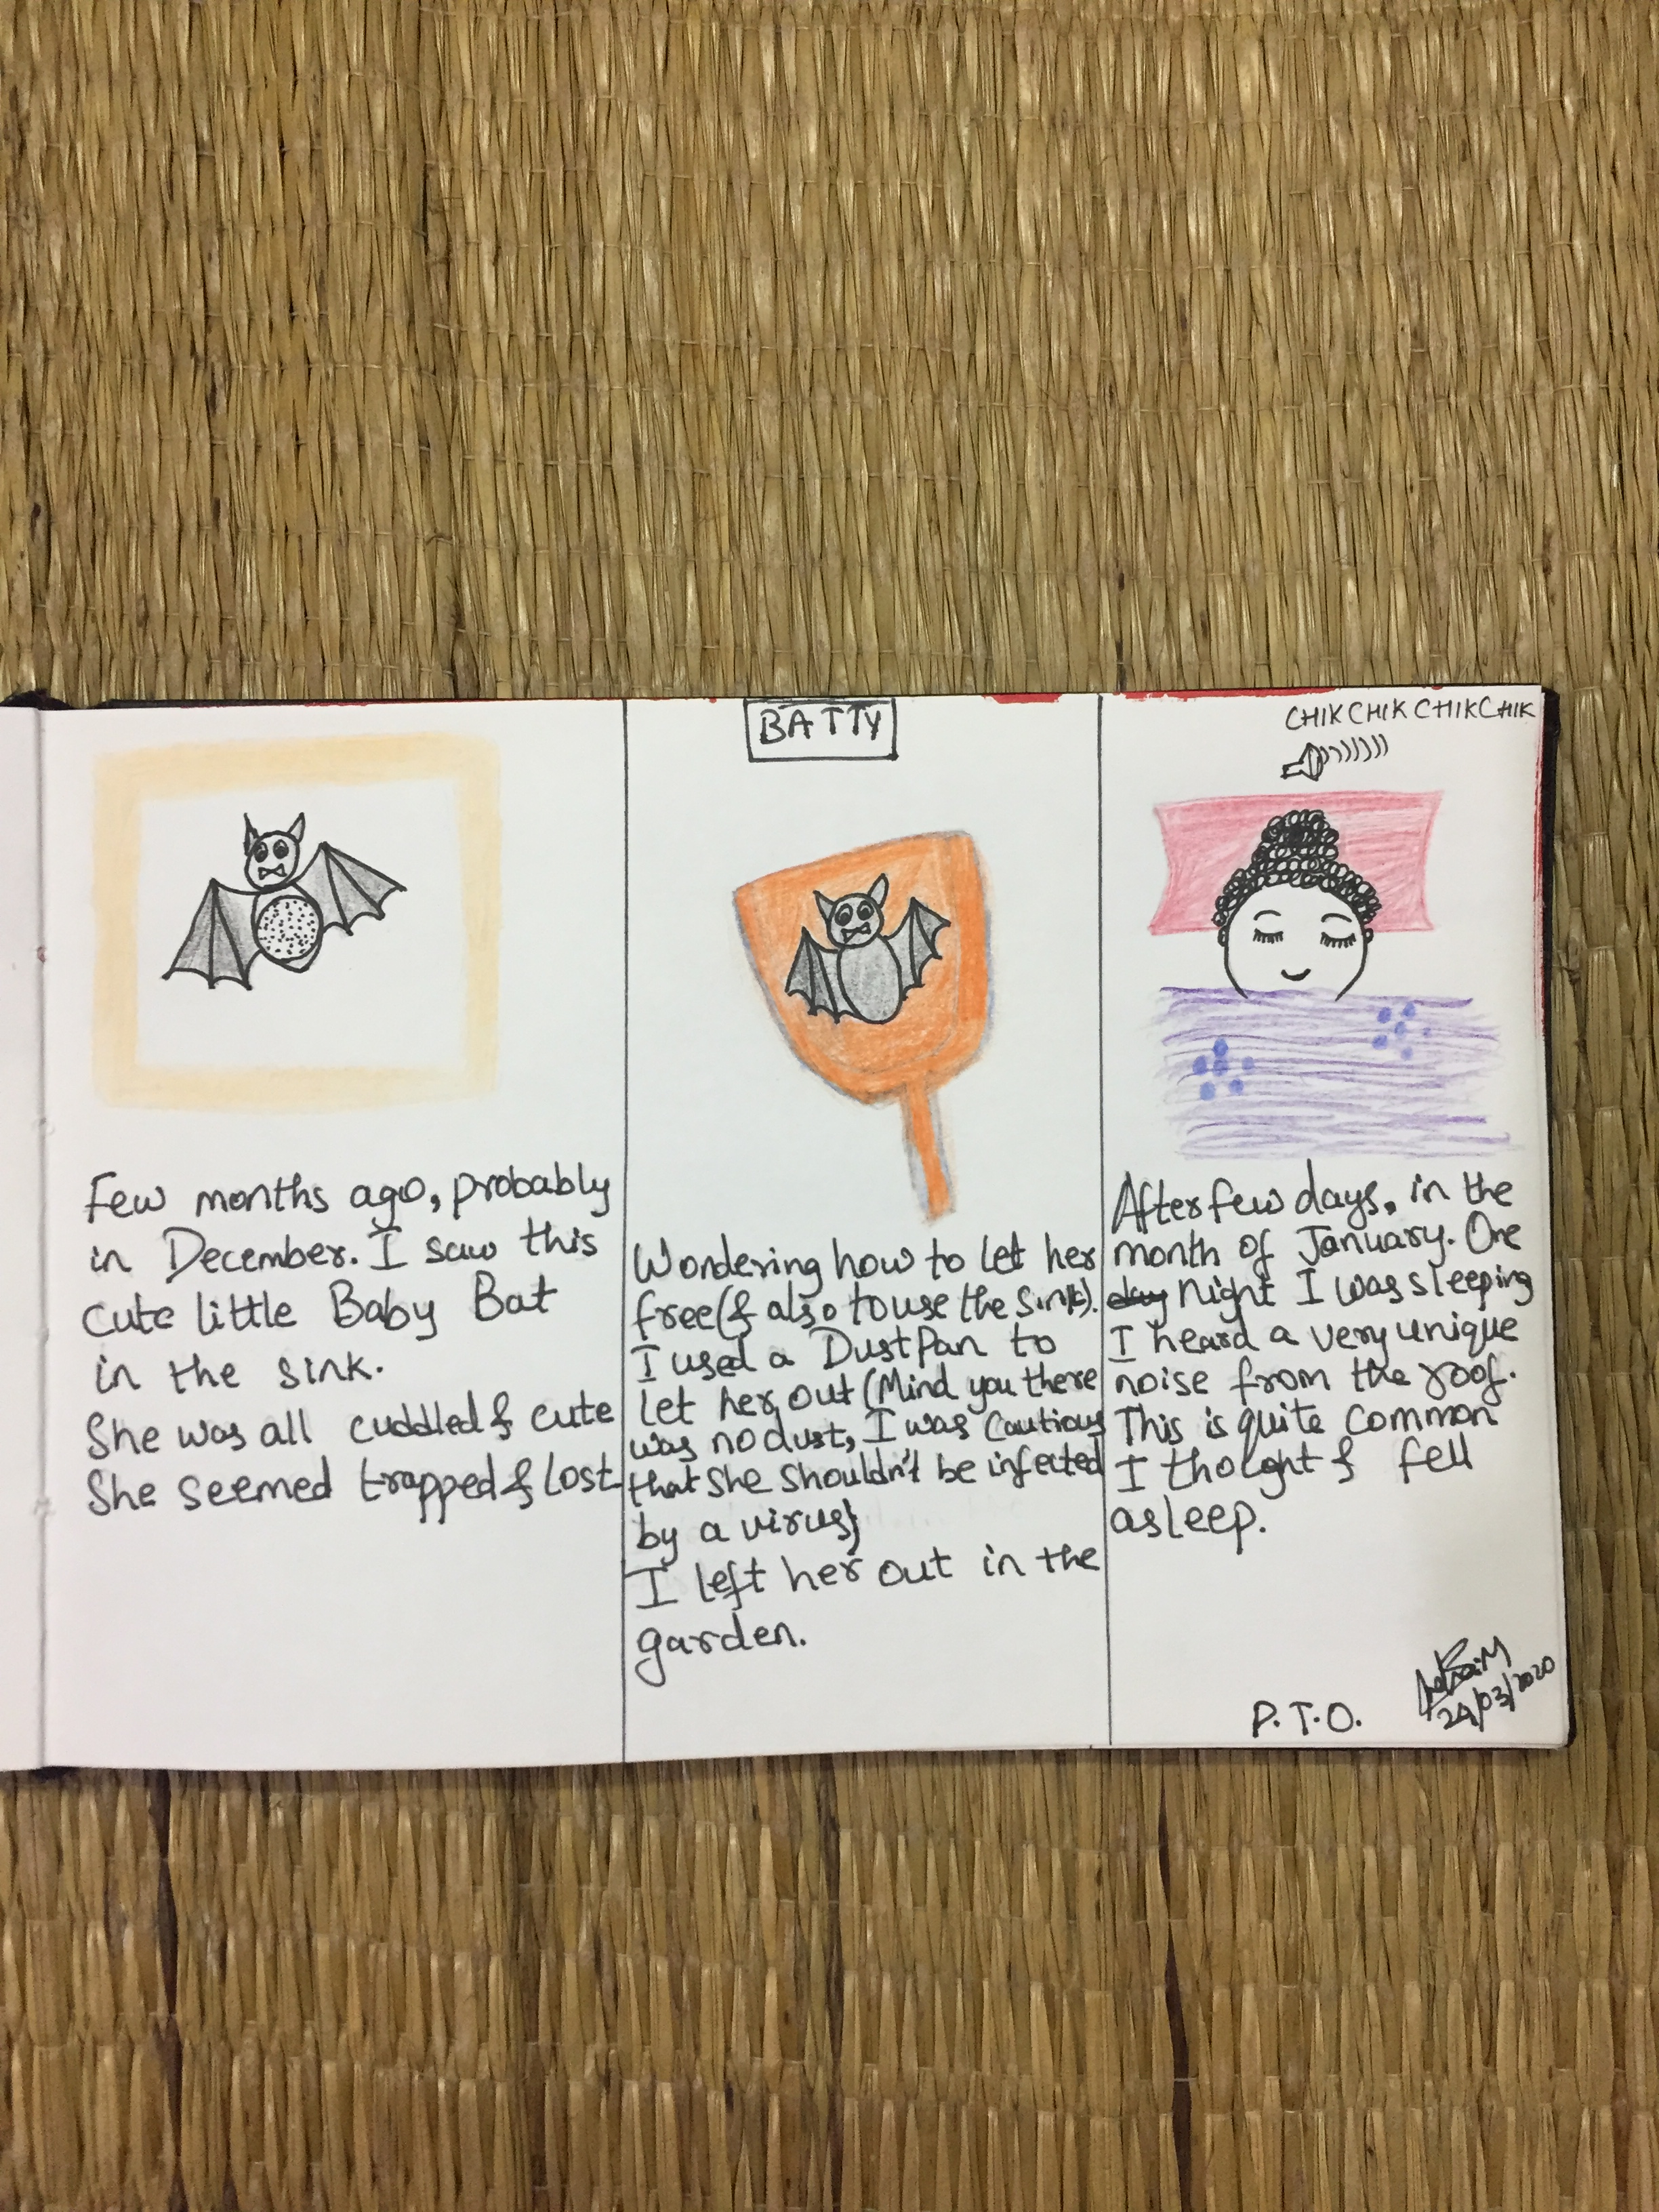 BATTY
Few months ago, probably
in December. I saw this
cute little Baby Bat
in the sink.
She was all cuddled & cute
She seemed trapped & lost
Wondering how to let her
free (& also to use the sink).
I used a DustPan to
let her out (Mind you there
was no dust, I was Cautious
that she shouldn't be infected
by a virus)
I left her out in the
garden.
CHIK CHIK CHIK CHIK
After few days, in the
month of January. One
day Night I was sleeping
I heard a very unique
noise from the roof.
This is quite common
I thought & fell
asleep.
P.T.O.
24/03/2020